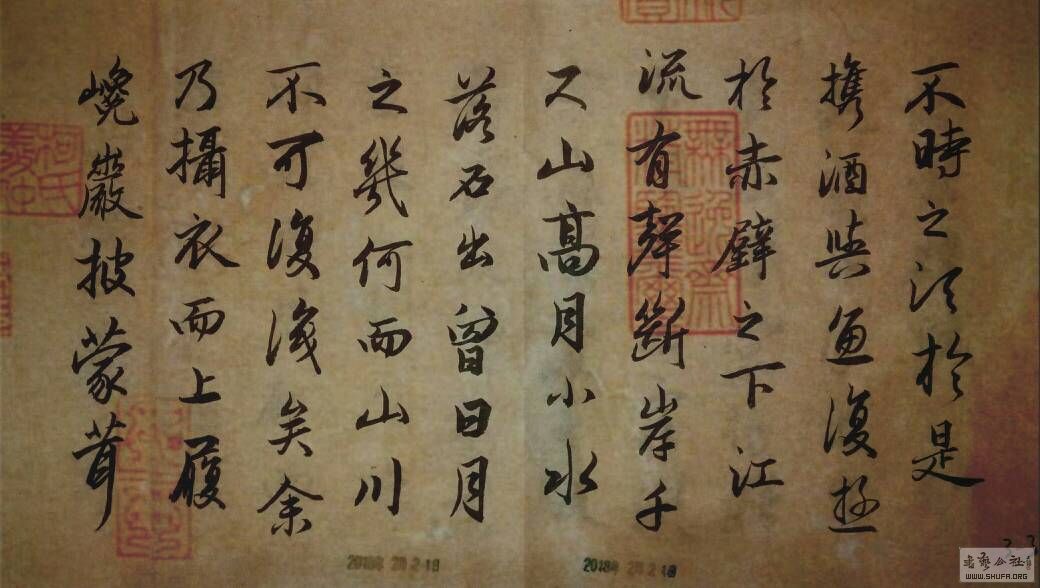 不時之須於是
携酒與魚復遊
於赤壁之下江
流有聲斷岸千
尺山高月小水
落石出曾日月
之幾何而山川
不可復識矣余
乃攝衣而上履
巉巖披蒙茸
書藝公社
WWW.SHUFA.ORG